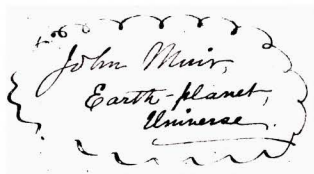 John Muir,
Earth-planet,
Universe.